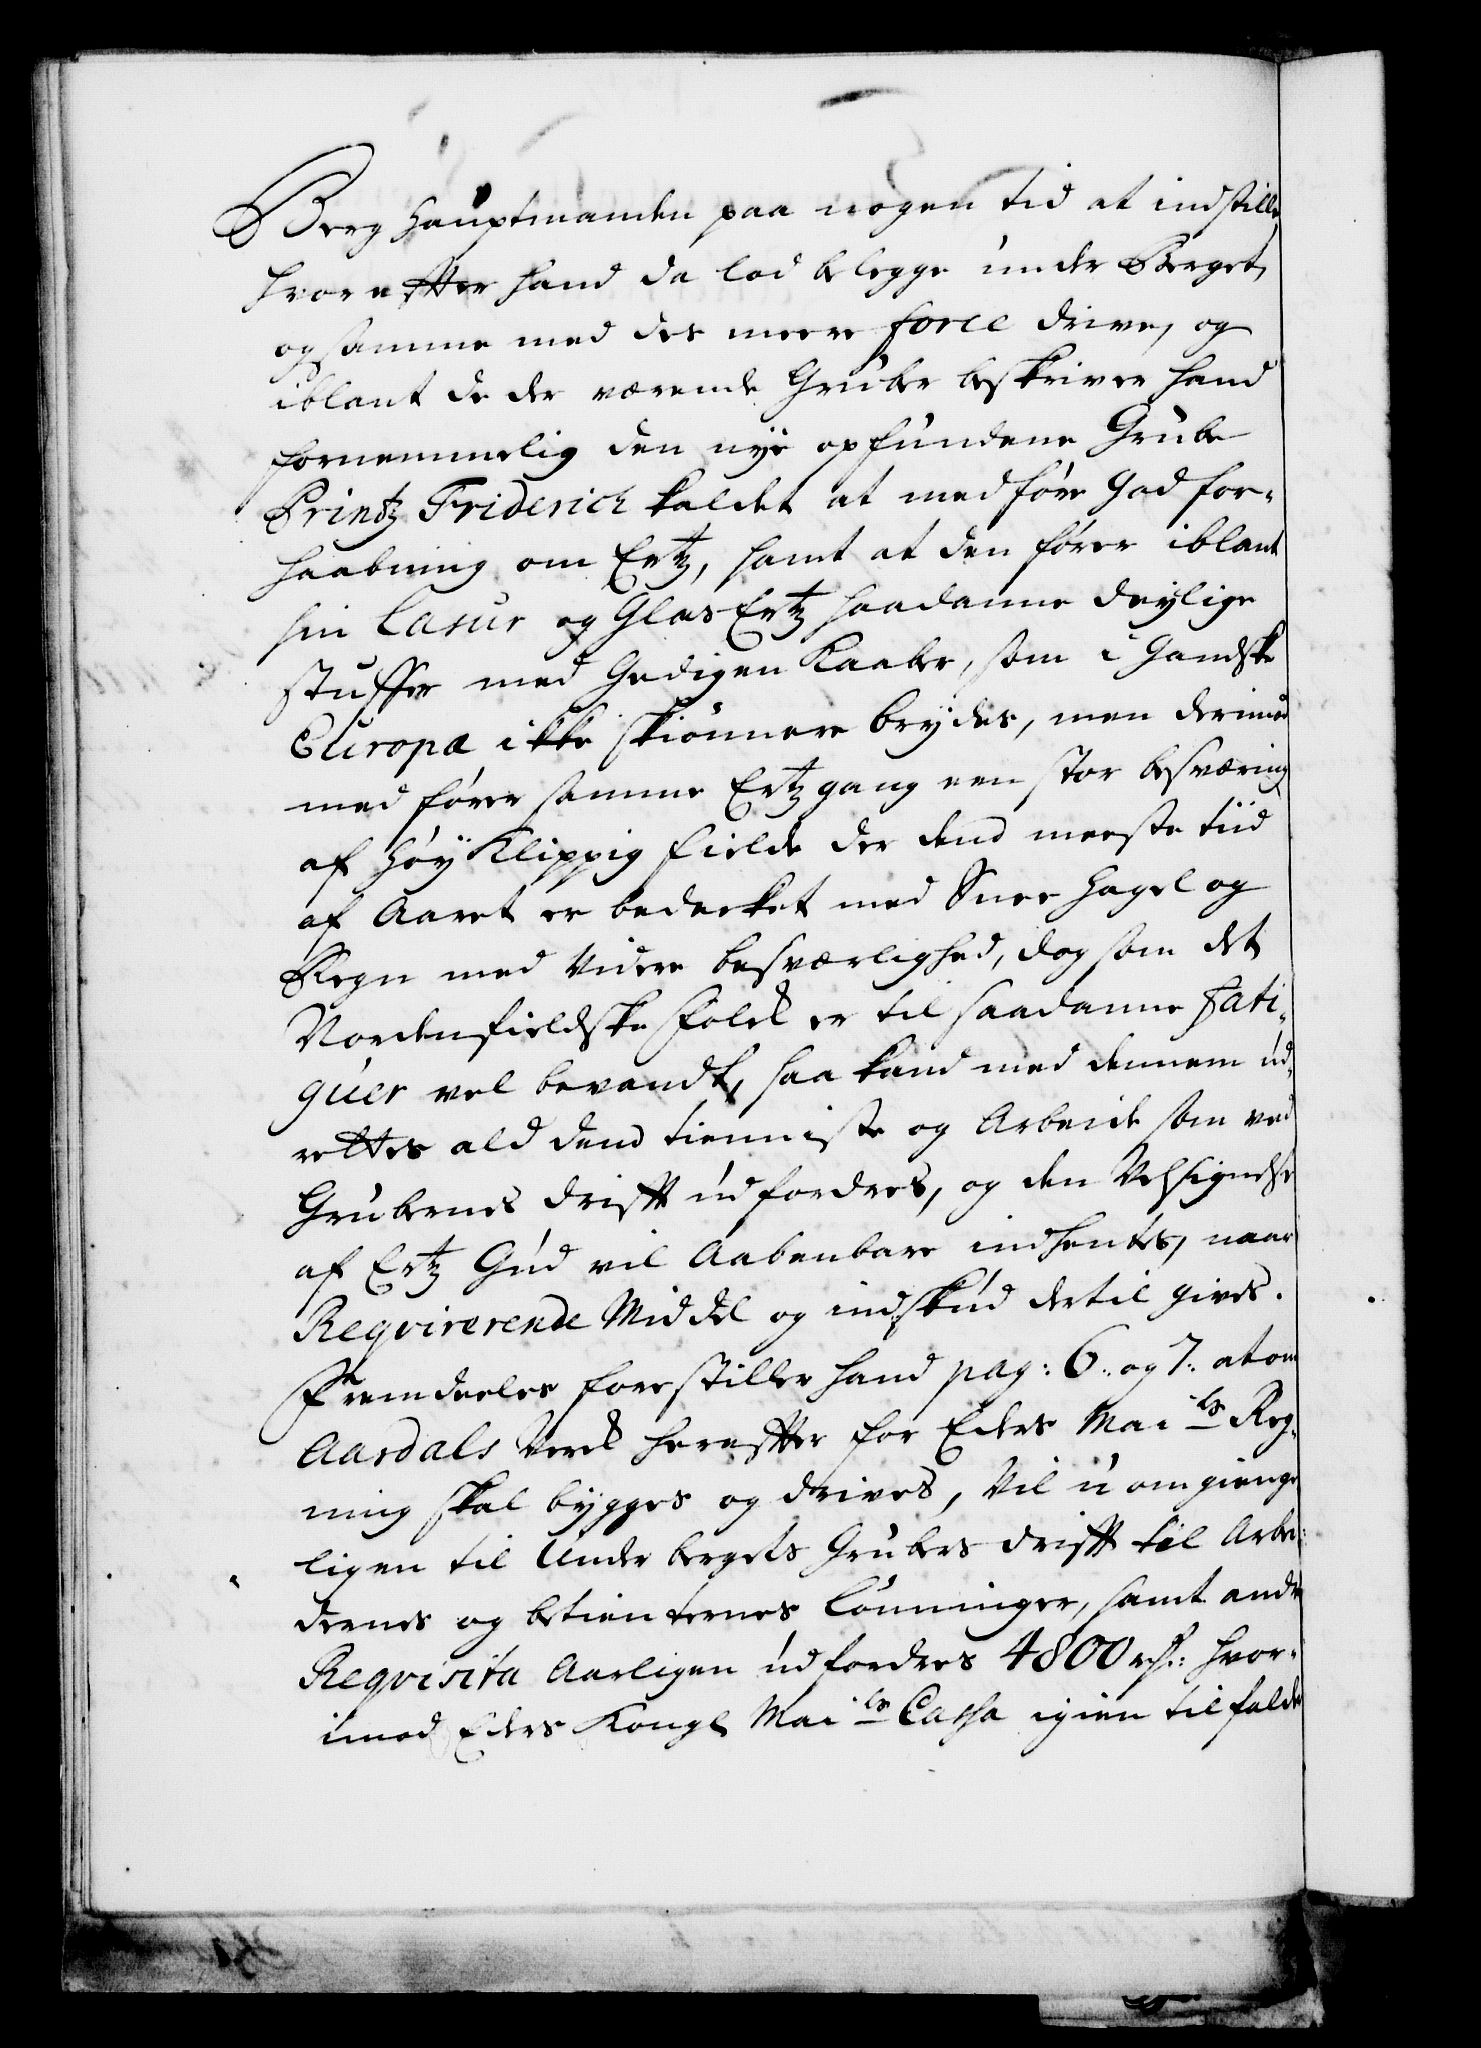 Berg Hauptmanden paa nogen tid at indstille,
hvorefter hand da lod belegge under Berget,
og samme med des meere force drive, og
iblant de der værende Gruber beskriver hand
fornemmelig den nye opfundene Grube
Printz Friderich kaldet at medføre god for-
haabning om Ertz, samt at den fører iblant
sin Lasur og Glas Ertz saadanne deylige
stuffer med Gedigen Kaaber, som i Gandske
Europa ikke skiønnere brydes, men derimod
medfører samme Ertz gang een stor besværing
af høy Klippig Fielde der dend meeste tiid
af Aaret er bedecket med Snee Hagel og
Regn med videre besværlighed, dog som det
Nordenfieldske Folck er til saadanne Fati-
guer vel bevandt, saa kand med dennem ud-
rettes ald dend tienniste og Arbeide som ved
Grubernes drifft udfordres, og den Velsignelse
af Ertz Gud vil Aabenbare indhentes, naar
Reqvirerende Middel og indskud dertil gives.
Fremdeeles forestiller hand pag: 6. og 7. at om
Aardals Verck herefter for Eders Mai.ts Reg-
ning skal bygges og drives, Vil u omgienge
ligen til Under bergets Grubers drifft til Arbei-
dernes og betienternes Lønninger, samt andre
Reqvisita Aarligen udfordres 4800 rd.: hvor-
imod Eders Kongl Mai.ts Cassa igien tilfalde